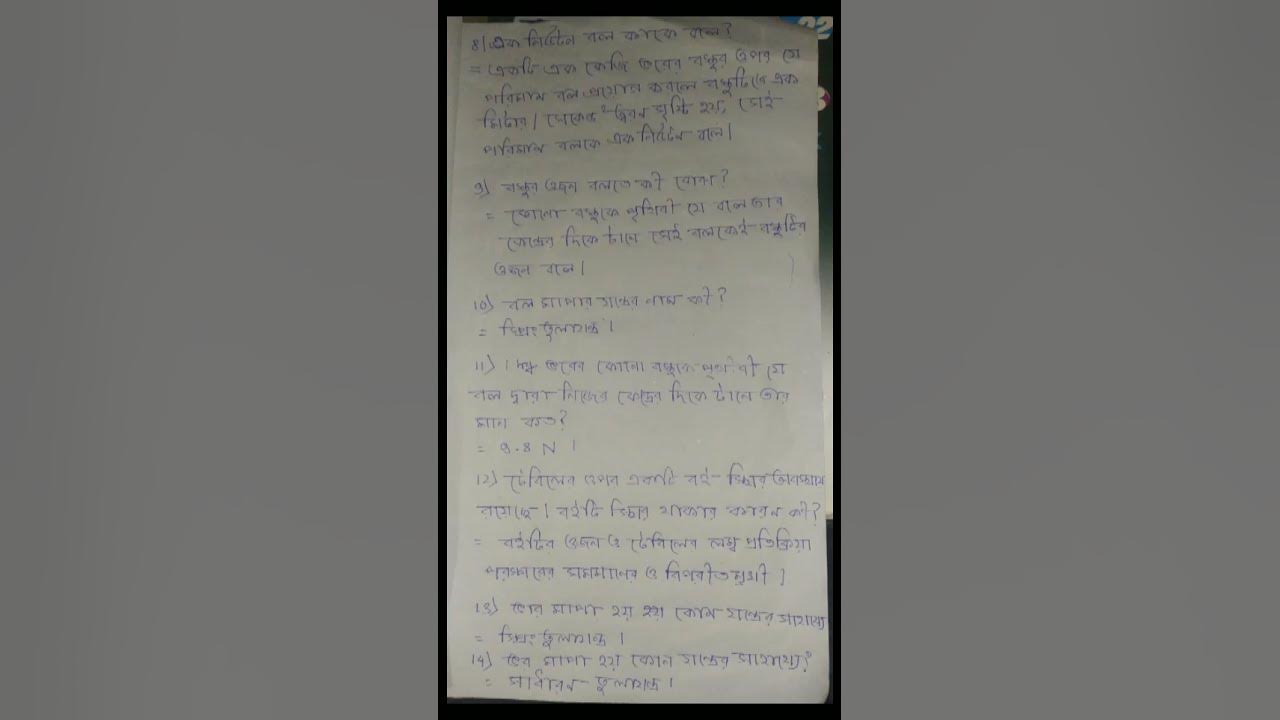 8) এক নিউটন বল কাকে বলে?
= একটি এক কেজি ভরের বস্তুর ওপর যে
পরিমান বল প্রয়োগ করলে বস্তুটিতে এক
মিটার / সেকেন্ড² ত্বরন সৃষ্টি হয়, সেই
পরিমান বলকে এক নিউটন বলে।
9) বস্তুর ওজন বলতে কী বোঝ?
= কোনো বস্তুকে পৃথিবী যে বলে তার
কেন্দ্রের দিকে টানে সেই বলকেই বস্তুটির
ওজন বলে।
10) বল মাপার যন্ত্রের নাম কী?
= স্প্রিং তুলাযন্ত্র।
11) 1 ভরের কোনো বস্তুকে পৃথিবী যে
বল দ্বারা নিজের কেন্দ্রের দিকে টানে তার
মান কত?
= 9.8 N।
12) টেবিলের ওপর একটি বই স্থির অবস্থায়
রয়েছে। বইটি স্থির থাকার কারন কী?
= বইটির ওজন ও টেবিলের লম্ব প্রতিক্রিয়া
পরস্পরের সমমানের ও বিপরীতমুখী।
13) ভার মাপা হয় হয় কোন যন্ত্রের সাহায্যে
= স্প্রিং তুলাযন্ত্র।
14) ভর মাপা হয় কোন যন্ত্রের সাহায্যে?
= সাধারন তুলাযন্ত্র।